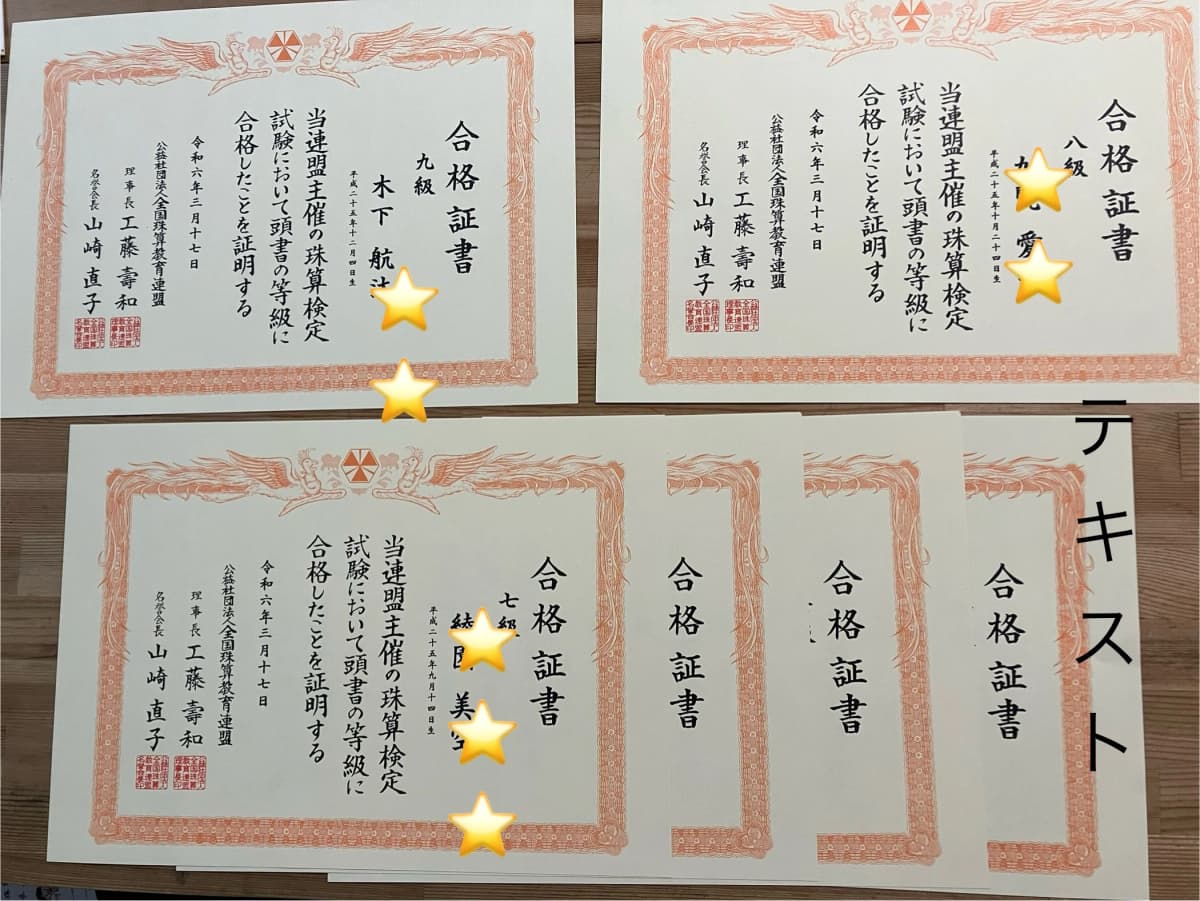 合格証書
九級
木下 航
平成二十五年十二月四日生
当連盟主催の珠算検定
試験において頭書の等級に
合格したことを証明する
令和六年三月十七日
公益社団法人全国珠算教育連盟
理事長 工藤壽和
名誉会長 山崎直子
合格証書
八級
愛
平成二十五年十月二十四日生
当連盟主催の珠算検定
試験において頭書の等級に
合格したことを証明する
令和六年三月十七日
公益社団法人全国珠算教育連盟
理事長 工藤壽和
名誉会長 山崎直子
合格証書
七級
美
平成二十五年九月十四日生
当連盟主催の珠算検定
試験において頭書の等級に
合格したことを証明する
令和六年三月十七日
公益社団法人全国珠算教育連盟
理事長 工藤壽和
名誉会長 山崎直子
合格証書
合格証書
合格証書
テキスト